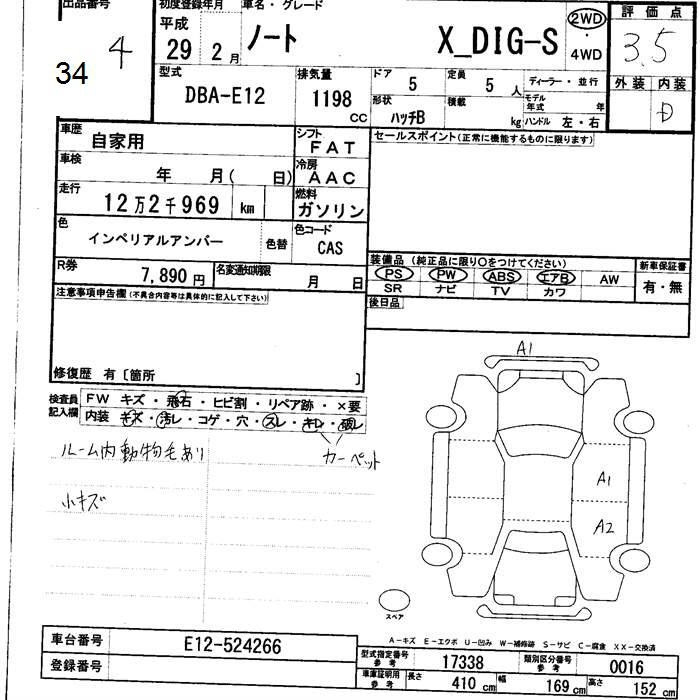 出品番号
4
34
初度登録年月
平成
29 2 月
車名・グレード
ノート X_DIG-S
2WD
・
4WD
評価点
3.5
外装 内装
D
型式
DBA-E12
排気量
1198
cc
ドア 5
定員 5 人
形状 ハッチB
積載 kg
ディーラー・並行
モデル年式 年
ハンドル 左・右
車歴 自家用
車検 年 月( 日)
走行 12万2千969 km
色 インペリアルアンバー 色替
シフト FAT
冷房 AAC
燃料 ガソリン
色コード CAS
R券 7,890 円
名変通知期限 月 日
セールスポイント(正常に機能するものに限ります)
装備品(純正品に限り○をつけてください)
PS PW ABS エアB AW
SR ナビ TV カワ
新車保証書
有・無
後日品
注意事項申告欄(不具合内容等は具体的に記入して下さい)
修復歴 有〔箇所 〕
検査員記入欄
FW キズ・飛石・ヒビ割・リペア跡・×要
内装 キズ・汚レ・コゲ・穴・スレ・キレ・破レ
ルーム内動物毛あり
カーペット
小キズ
A1
A1
A2
スペア
A-キズ E-エクボ U-凹み W-補修跡 S-サビ C-腐食 XX-交換済
車台番号 E12-524266
登録番号
型式指定番号 参考 17338
類別区分番号 参考 0016
車庫証明用 参考 長さ 410 cm 幅 169 cm 高さ 152 cm